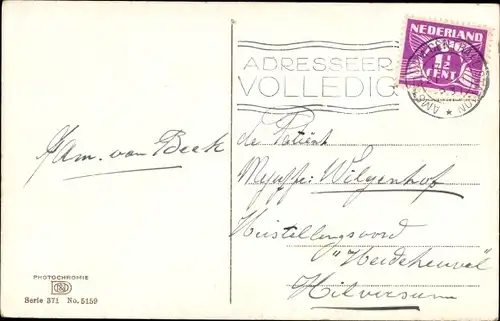 NEDERLAND
1½
CENT
ADRESSEER
VOLLEDIG
Fam. van Beek
de Patiënt
Mejuffr: Wilgenhof
Herstellingsoord
"Heideheuvel"
Hilversum
PHOTOCHROMIE
Serie 371 No. 5159